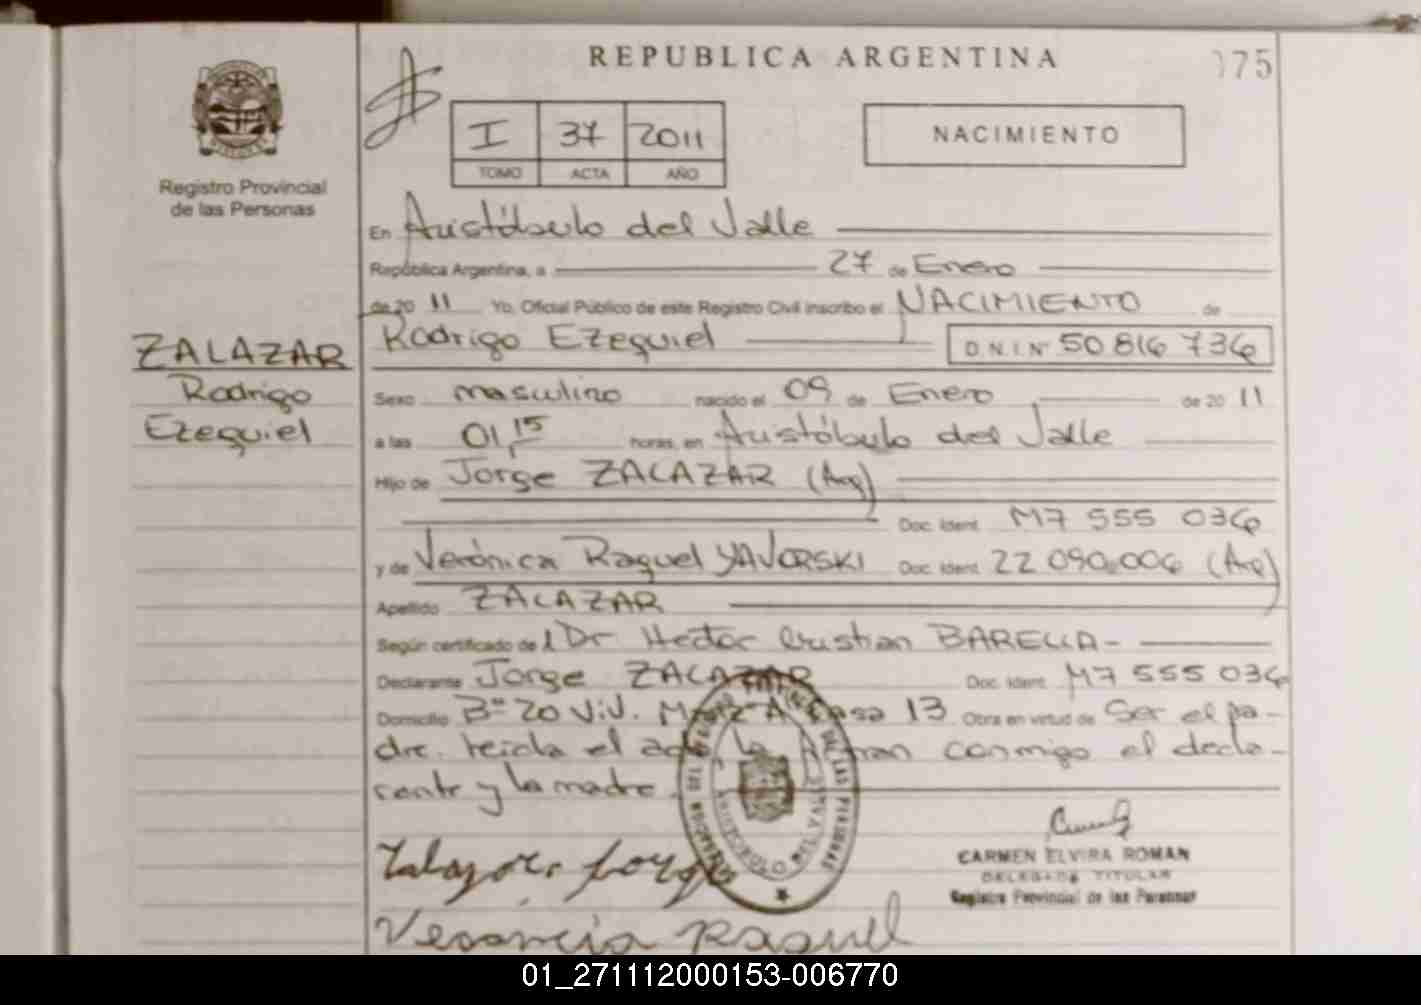 REPUBLICA ARGENTINA
075
Registro Provincial
de las Personas
I 37 2011
TOMO ACTA AÑO
NACIMIENTO
En Aristóbulo del Valle
República Argentina, a 27 de Enero
de 20 11 Yo, Oficial Público de este Registro Civil inscribo el NACIMIENTO de
Rodrigo Ezequiel D.N.I Nº 50 816 736
ZALAZAR
Rodrigo
Ezequiel
Sexo masculino nacido el 09 de Enero de 20 11
a las 01,15 horas, en Aristóbulo del Valle
Hijo de Jorge ZALAZAR (Arg)
Doc. Ident. M7 555 036
y de Verónica Raquel YAVORSKI Doc. Ident. 22 090.006 (Arg)
Apellido ZALAZAR
Según certificado del Dr Hector Cristian BARELLA-
Declarante Jorge ZALAZAR Doc. Ident. M7 555 036
Domicilio Bº 20 Viv. Manz A Casa 13 Obra en virtud de Ser el pa-
dre. leída el acta la firman conmigo el decla-
rante y la madre.
REGISTRO PROVINCIAL DE LAS PERSONAS
ARISTOBULO DEL VALLE
CARMEN ELVIRA ROMAN
DELEGADA TITULAR
Registro Provincial de las Personas
Zalazar Jorge
Verónica Raquel
01_271112000153-006770